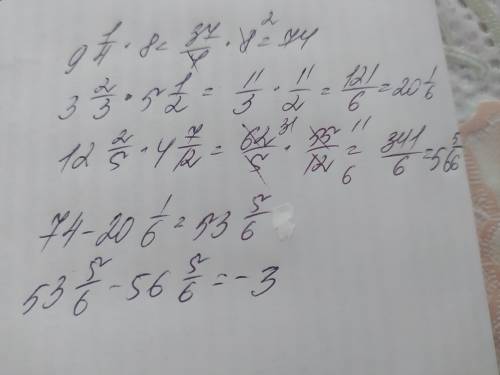 9 1/4 · 8 = 37/4 · 8 2 = 74
3 2/3 · 5 1/2 = 11/3 · 11/2 = 121/6 = 20 1/6
12 2/5 · 4 7/12 = 62 31/5 · 55 11/12 6 = 341/6 = 56 5/6
74 - 20 1/6 = 53 5/6
53 5/6 - 56 5/6 = -3